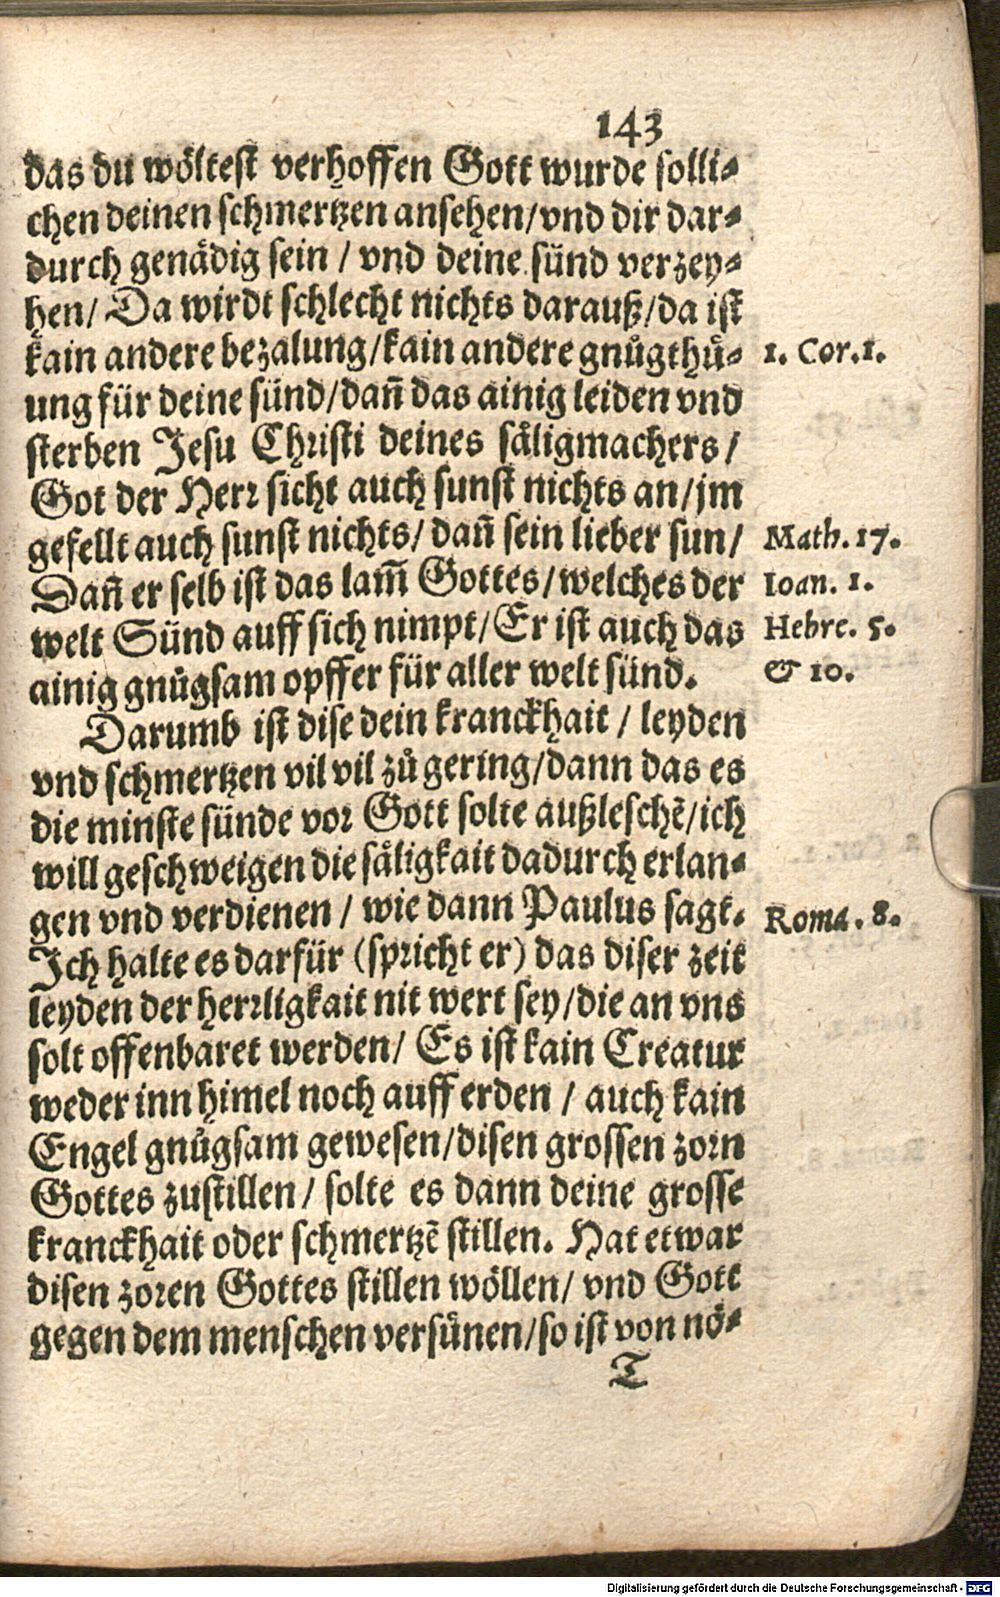 143
das du wöltest verhoffen Gott wurde solli-
chen deinen schmertzen ansehen/vnd dir dar-
durch genädig sein / vnd deine sünd verzey-
hen/ Da wirdt schlecht nichts darauß/da ist
kain andere bezalung/kain andere gnůgthů- 1. Cor.1.
ung für deine sünd/dañ das ainig leiden vnd
sterben Jesu Christi deines säligmachers/
Got der Herr sicht auch sunst nichts an/jm
gefellt auch sunst nichts/ dañ sein lieber sun/ Math. 17.
Dañ er selb ist das lam̃ Gottes/welches der Ioan. 1.
welt Sünd auff sich nimpt/Er ist auch das Hebre. 5.
ainig gnůgsam opffer für aller welt sünd. & 10.
Darumb ist dise dein kranckhait / leyden
vnd schmertzen vil vil zů gering/dann das es
die minste sünde vor Gott solte außleschẽ/ich
will geschweigen die säligkait dadurch erlan-
gen vnd verdienen / wie dann Paulus sagt. Roma. 8.
Ich halte es darfür (spricht er) das diser zeit
leyden der herrligkait nit wert sey/die an vns
solt offenbaret werden/ Es ist kain Creatur
weder inn himel noch auff erden / auch kain
Engel gnůgsam gewesen/disen grossen zorn
Gottes zustillen/ solte es dann deine grosse
kranckhait oder schmertzẽ stillen. Hat etwar
disen zoren Gottes stillen wöllen/ vnd Gott
gegen dem menschen versünen/so ist von nö-
T
Digitalisierung gefördert durch die Deutsche Forschungsgemeinschaft - DFG